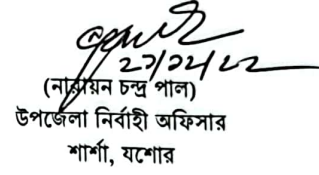 ২৭/১২/২২
(নারায়ন চন্দ্র পাল)
উপজেলা নির্বাহী অফিসার
শার্শা, যশোর